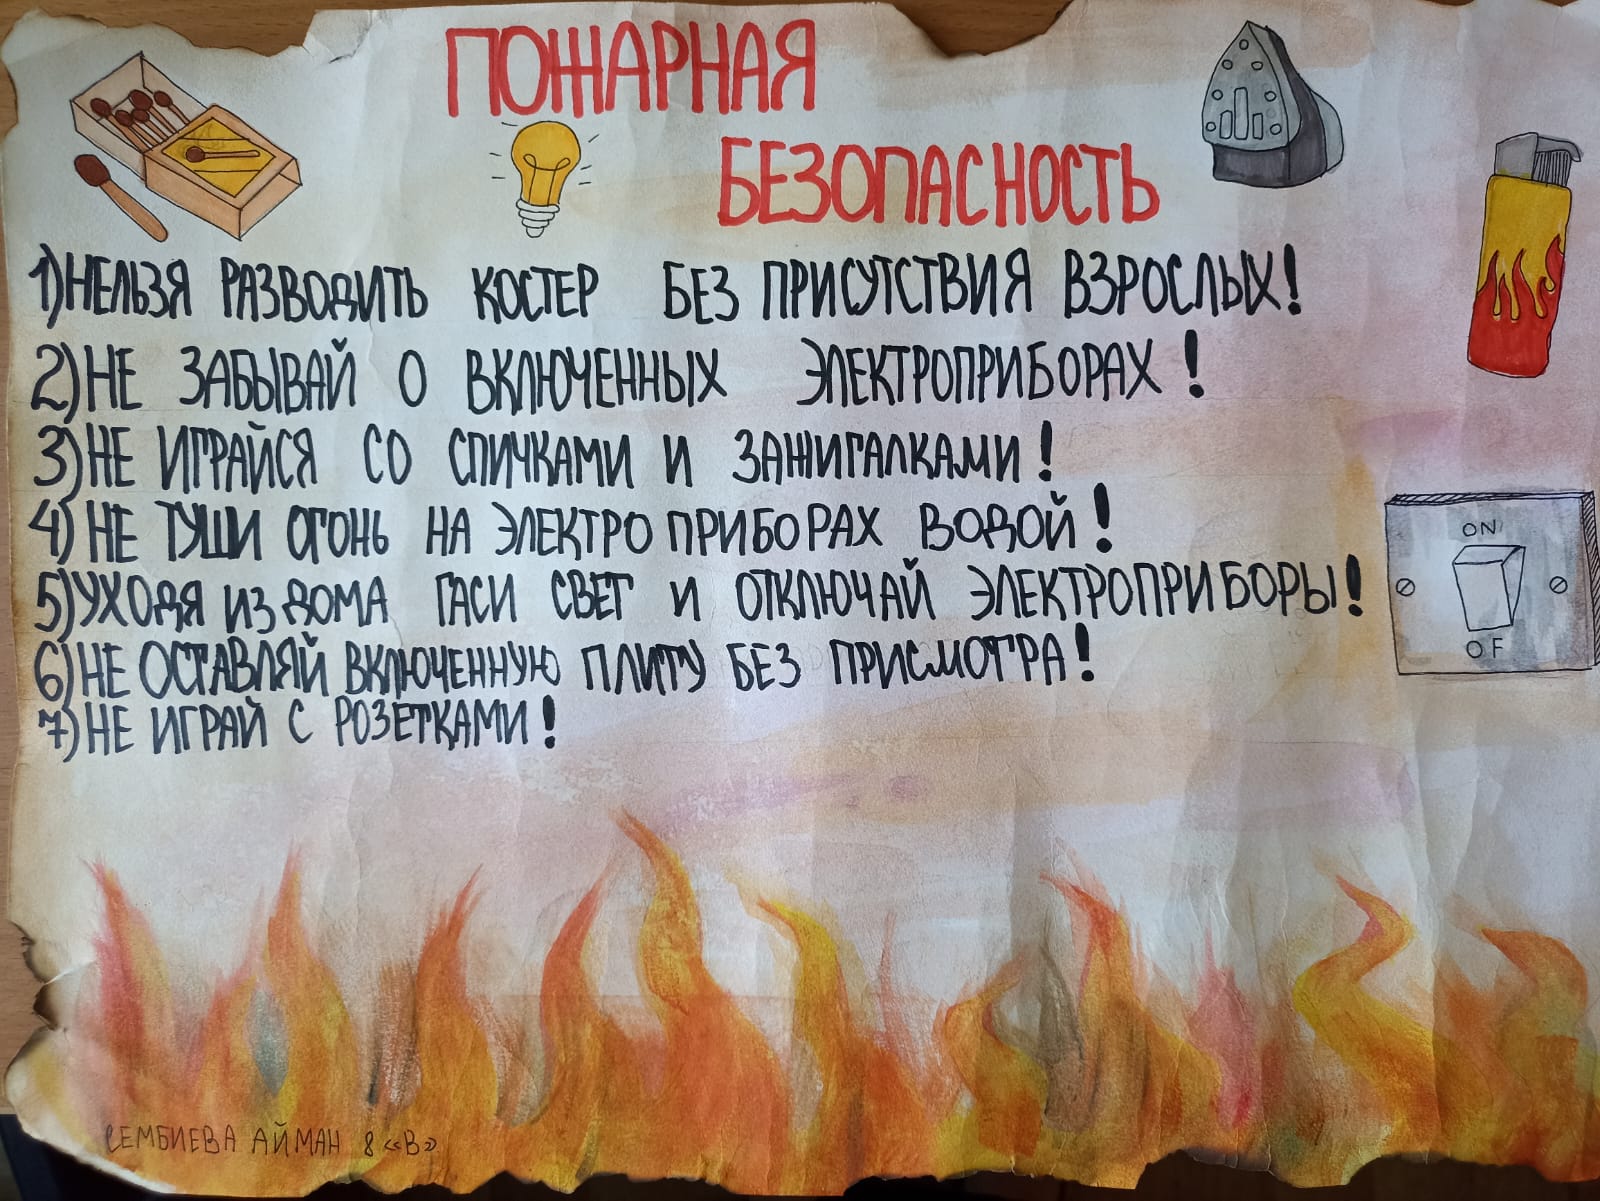 ПОЖАРНАЯ
БЕЗОПАСНОСТЬ
1) НЕЛЬЗЯ РАЗВОДИТЬ КОСТЕР БЕЗ ПРИСУТСТВИЯ ВЗРОСЛЫХ!
2) НЕ ЗАБЫВАЙ О ВКЛЮЧЕННЫХ ЭЛЕКТРОПРИБОРАХ!
3) НЕ ИГРАЙСЯ СО СПИЧКАМИ И ЗАЖИГАЛКАМИ!
4) НЕ ТУШИ ОГОНЬ НА ЭЛЕКТРОПРИБОРАХ ВОДОЙ!
5) УХОДЯ ИЗ ДОМА ГАСИ СВЕТ И ОТКЛЮЧАЙ ЭЛЕКТРОПРИБОРЫ!
6) НЕ ОСТАВЛЯЙ ВКЛЮЧЕННУЮ ПЛИТУ БЕЗ ПРИСМОТРА!
7) НЕ ИГРАЙ С РОЗЕТКАМИ!
ON
OF
СЕМБИЕВА АЙМАН 8 «В»